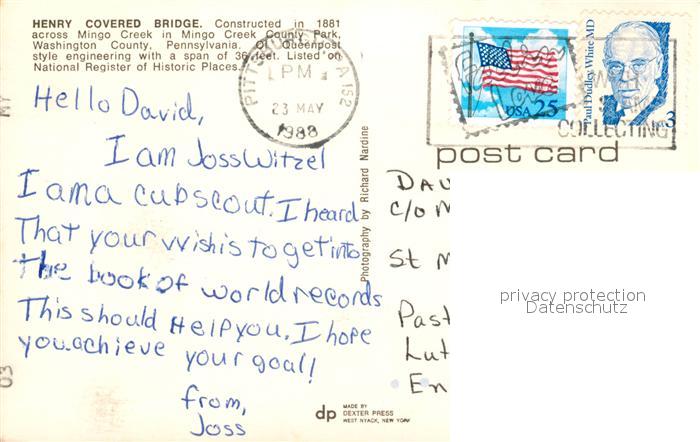 HENRY COVERED BRIDGE. Constructed in 1881
across Mingo Creek in Mingo Creek County Park,
Washington County, Pennsylvania. Of Queenpost
style engineering with a span of 36 feet. Listed on
National Register of Historic Places.
PITTSBURGH, PA 152
PM
23 MAY
1988
USA 25
Paul Dudley White MD
3
COLLECTING
post card
Hello David,
I am Joss Witzel
I am a cubscout. I heard
That your wish is to get into
The book of world records
This should Help you. I hope
you achieve your goal!
from,
Joss
Photography by Richard Nardine
DAV
c/o M
St M
Past
Lut
En
privacy protection
Datenschutz
dp
MADE BY
DEXTER PRESS
WEST NYACK, NEW YORK
NY
03